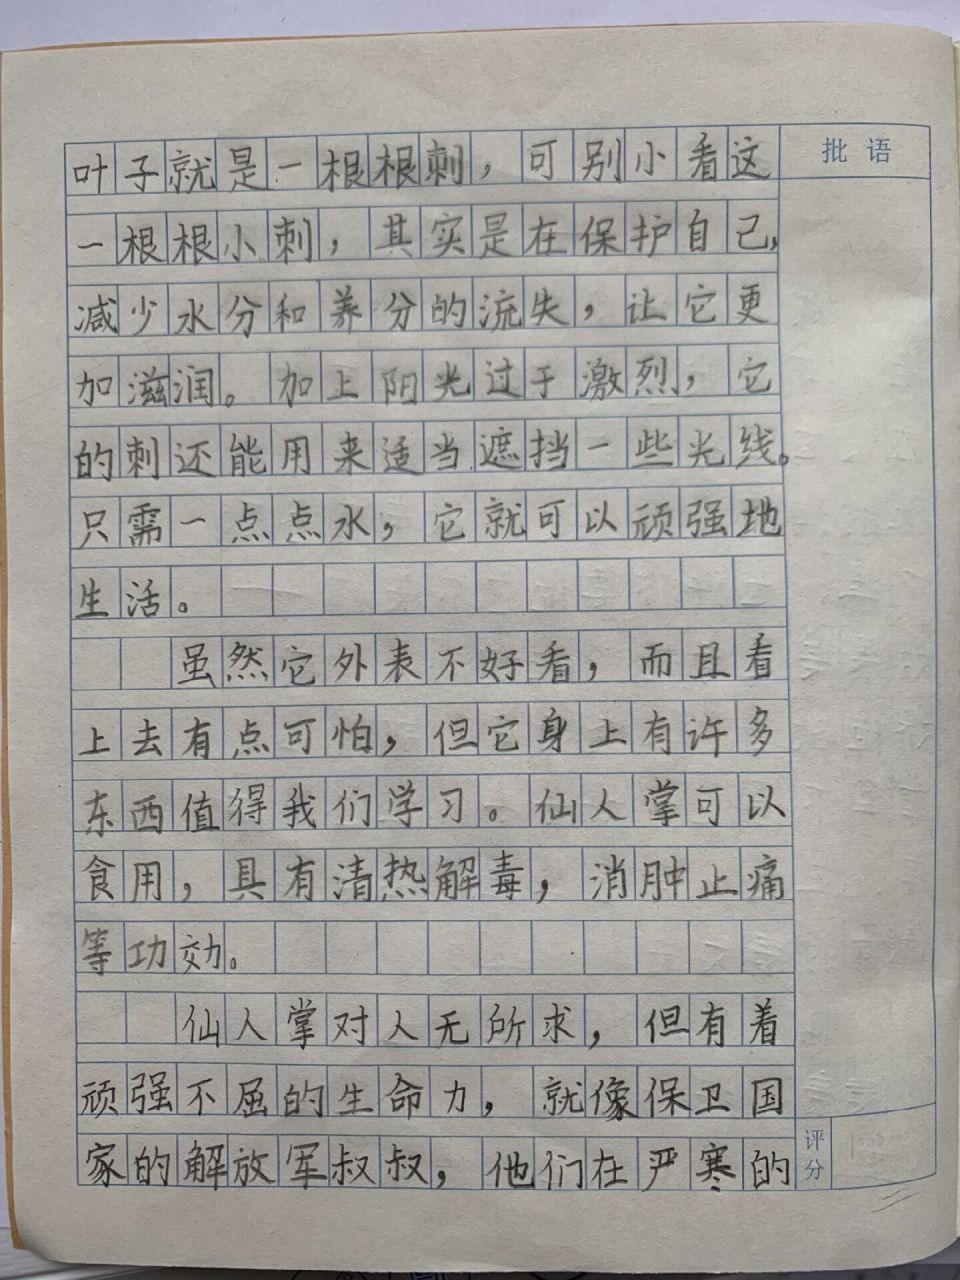 叶子就是一根根刺，可别小看这
批语
一根根小刺，其实是在保护自己，
减少水分和养分的流失，让它更
加滋润。加上阳光过于激烈，它
的刺还能用来适当遮挡一些光线。
只需一点点水，它就可以顽强地
生活。
虽然它外表不好看，而且看
上去有点可怕，但它身上有许多
东西值得我们学习。仙人掌可以
食用，具有清热解毒，消肿止痛
等功效。
仙人掌对人无所求，但有着
顽强不屈的生命力，就像保卫国
家的解放军叔叔，他们在严寒的
评分